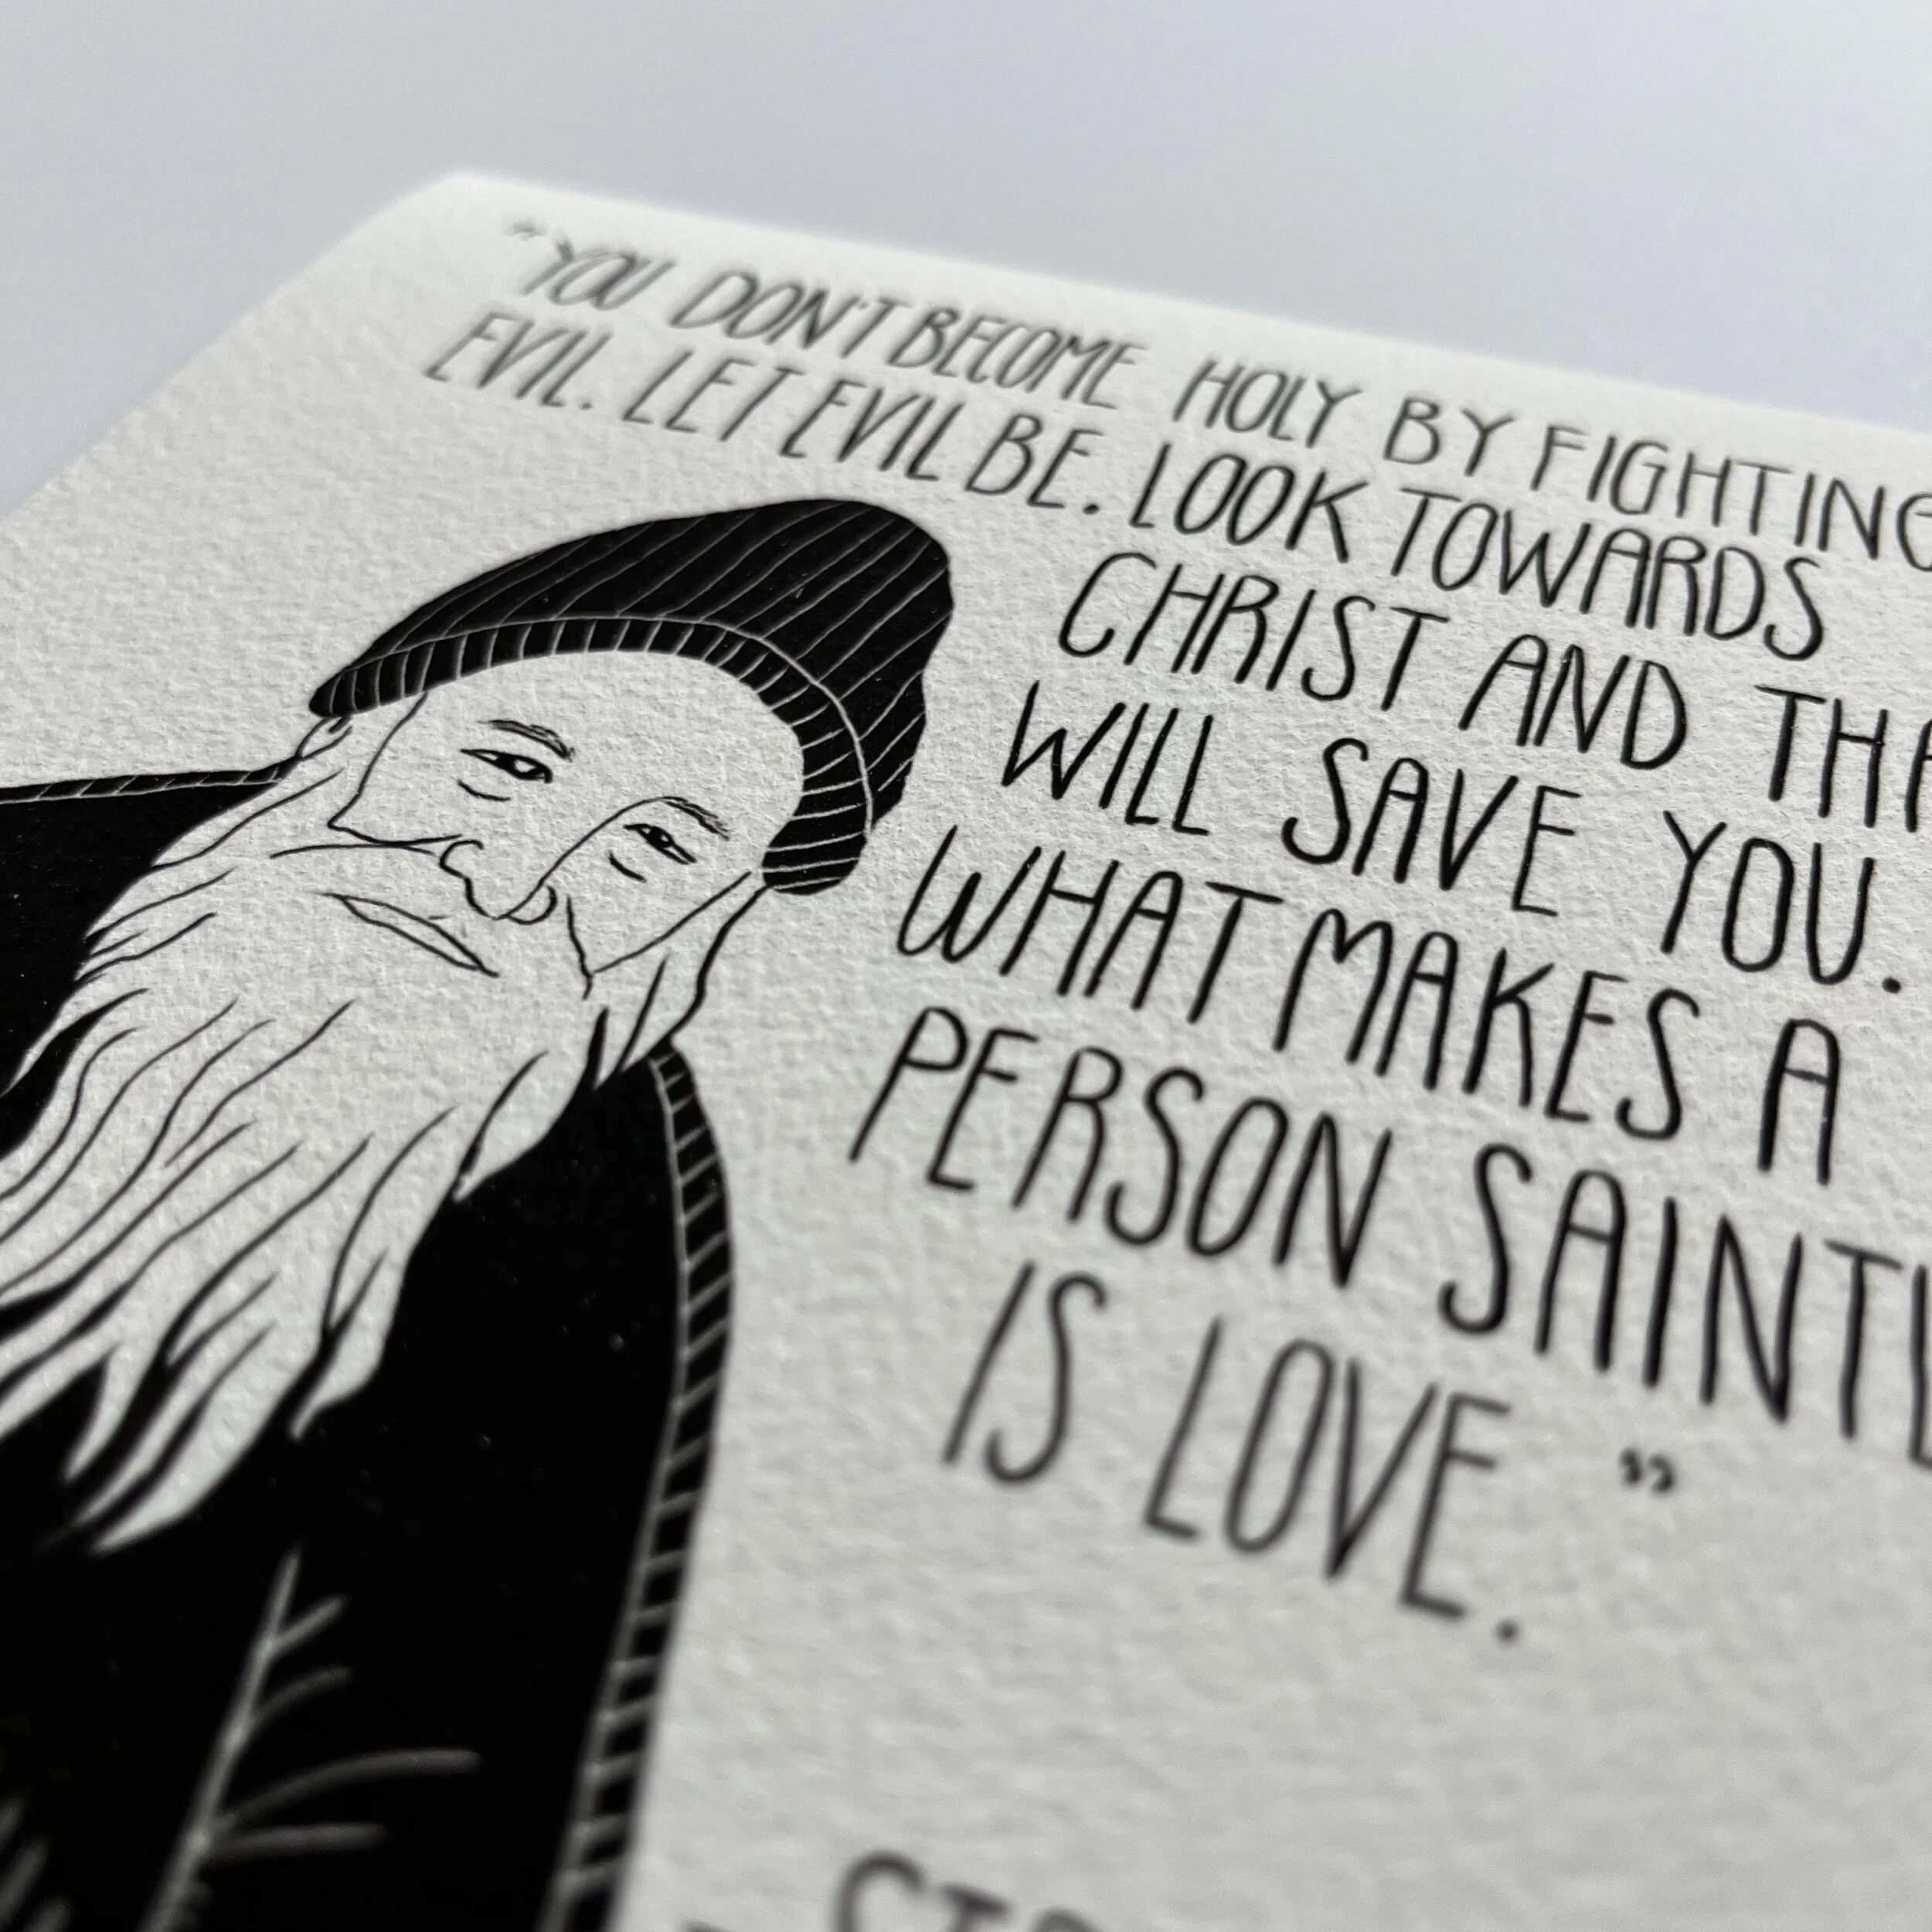 "YOU DON'T BECOME HOLY BY FIGHTING
EVIL. LET EVIL BE. LOOK TOWARDS
CHRIST AND THA
WILL SAVE YOU.
WHAT MAKES A
PERSON SAINTL
IS LOVE."